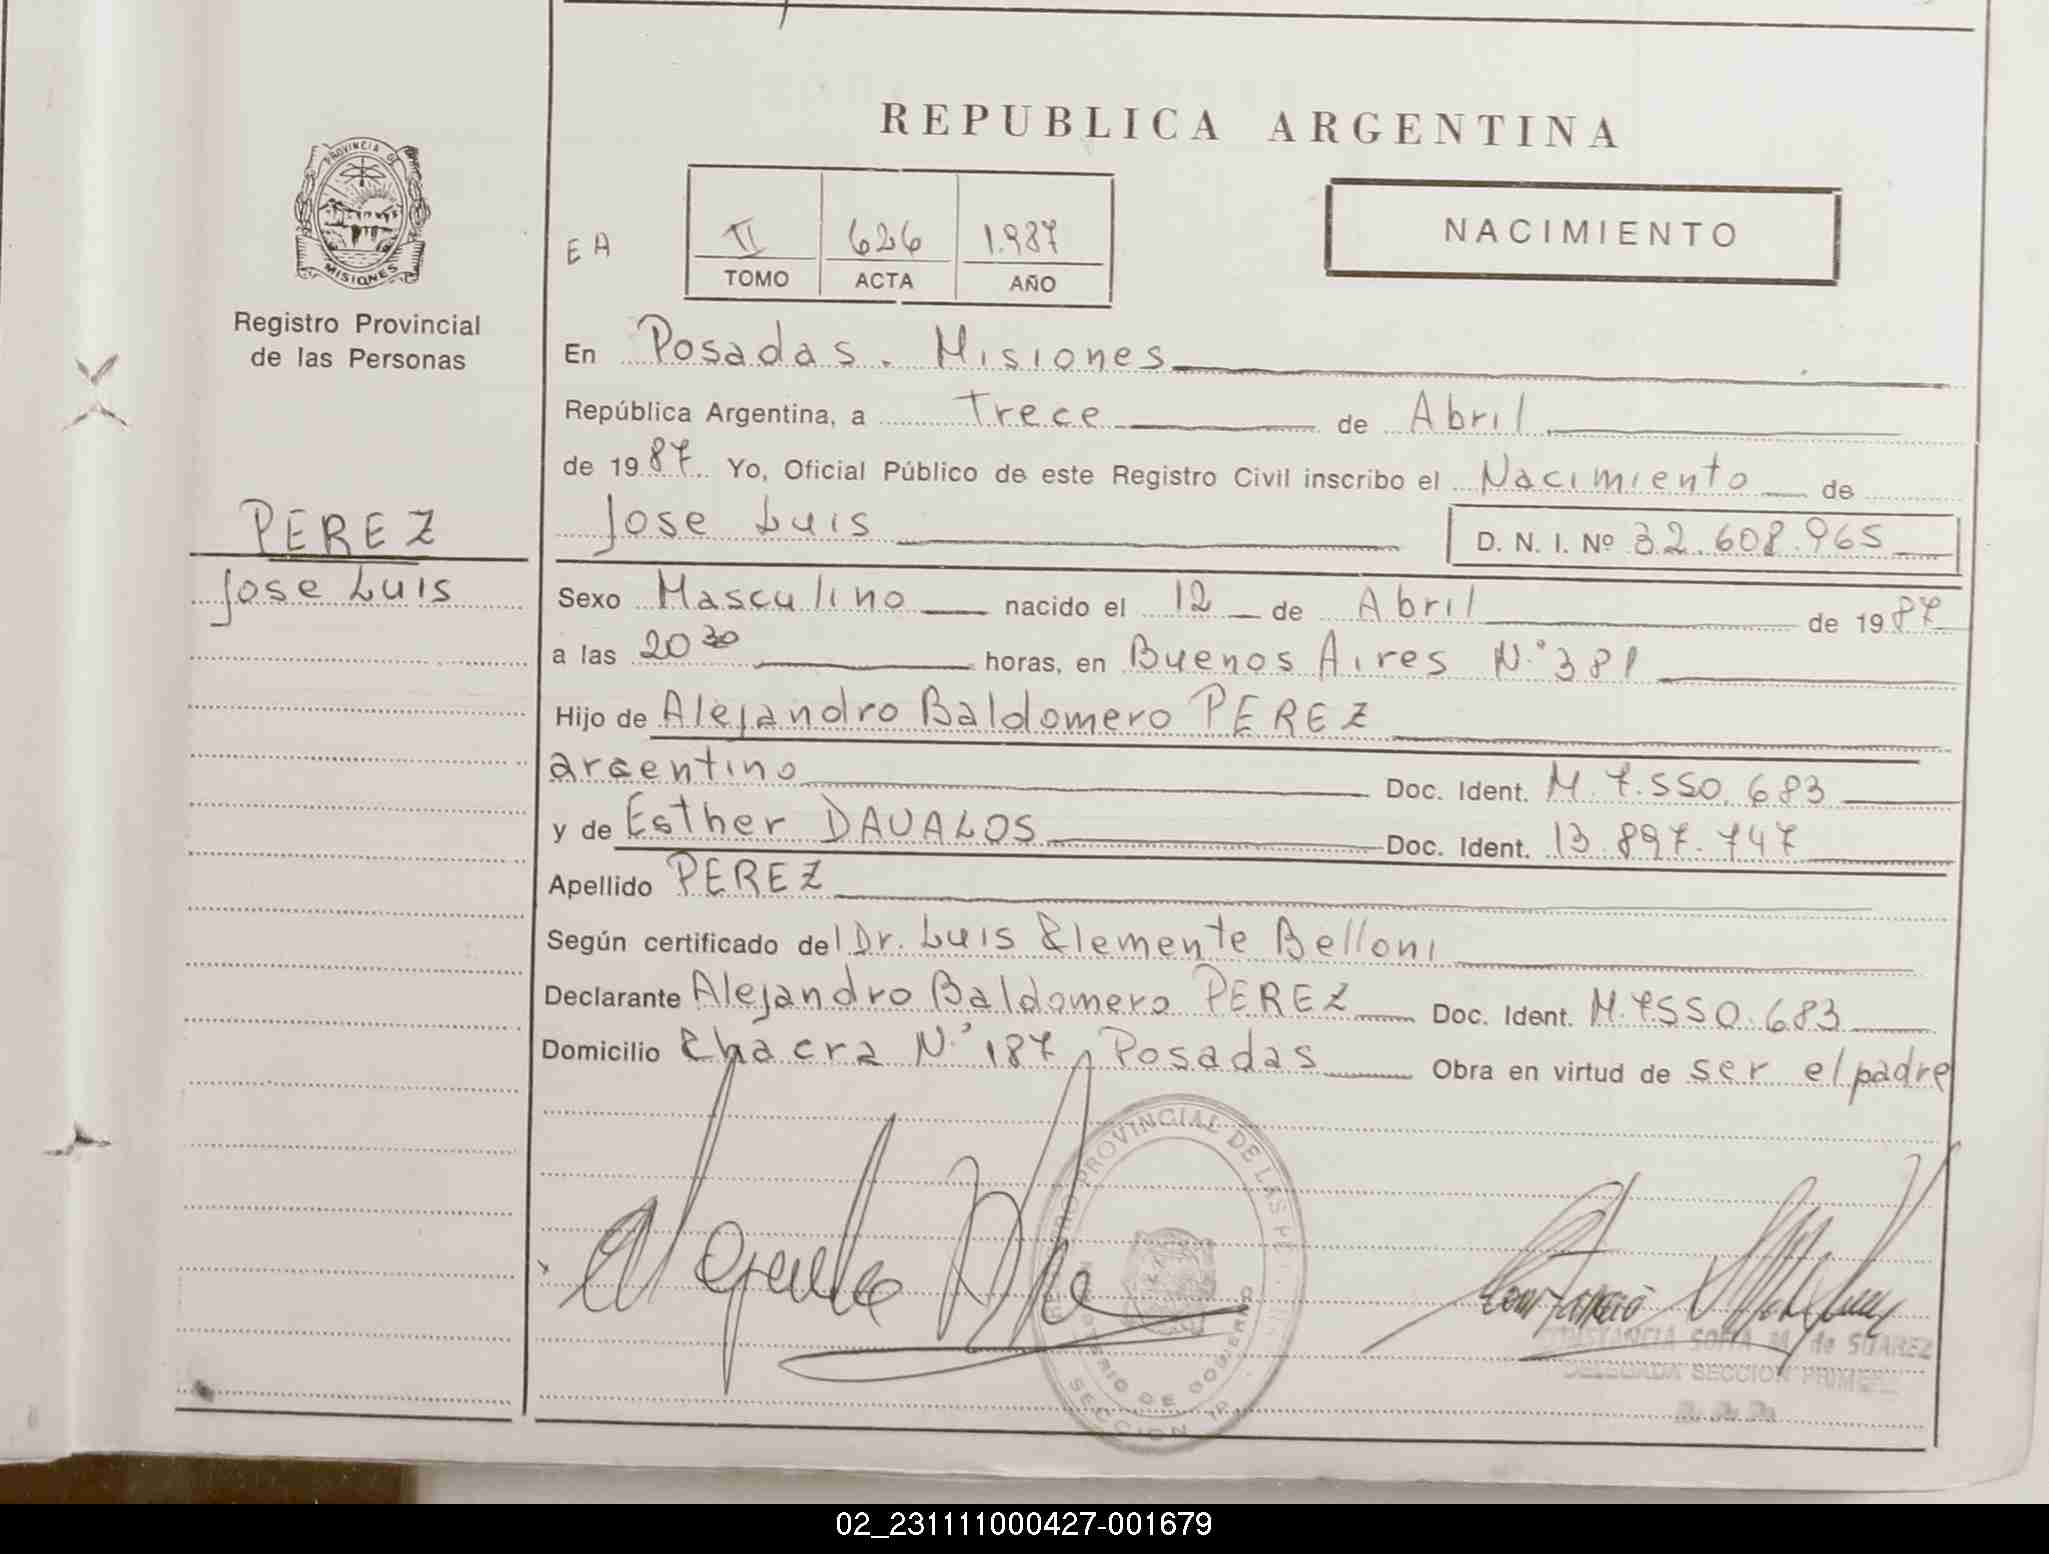 REPUBLICA ARGENTINA
PROVINCIA DE
MISIONES
Registro Provincial
de las Personas
PEREZ
Jose Luis
EA
II 626 1.987
TOMO ACTA AÑO
NACIMIENTO
En Posadas. Misiones
República Argentina, a Trece de Abril
de 1987 Yo, Oficial Público de este Registro Civil inscribo el Nacimiento de
Jose Luis D. N. I. Nº 32.608.965
Sexo Masculino nacido el 12 de Abril de 1987
a las 20 30 horas, en Buenos Aires N.° 381
Hijo de Alejandro Baldomero PEREZ
argentino Doc. Ident. M. 7.550.683
y de Esther DAVALOS Doc. Ident. 13.897.747
Apellido PEREZ
Según certificado del Dr. Luis Clemente Belloni
Declarante Alejandro Baldomero PEREZ Doc. Ident. M.7550.683
Domicilio Chacra N.° 187, Posadas Obra en virtud de ser el padre
PROVINCIAL DE LAS
DE GOBIERNO
SECCION 1ª
SOFIA M. de SUAREZ
DELEGADA SECCION PRIMERA
02_231111000427-001679